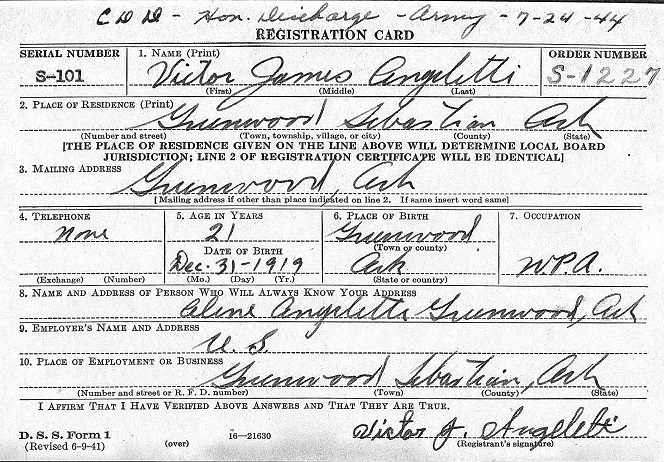 CDD - Hon. Discharge - Army - 7-24-44
REGISTRATION CARD
SERIAL NUMBER 1. NAME (Print) ORDER NUMBER
S-101 Victor James Angeletti S-1227
(First) (Middle) (Last)
2. PLACE OF RESIDENCE (Print)
Greenwood Sebastian Ark
(Number and street) (Town, township, village, or city) (County) (State)
[THE PLACE OF RESIDENCE GIVEN ON THE LINE ABOVE WILL DETERMINE LOCAL BOARD
JURISDICTION; LINE 2 OF REGISTRATION CERTIFICATE WILL BE IDENTICAL]
3. MAILING ADDRESS
Greenwood, Ark
[Mailing address if other than place indicated on line 2. If same insert word same]
4. TELEPHONE 5. AGE IN YEARS 6. PLACE OF BIRTH 7. OCCUPATION
None 21 Greenwood
DATE OF BIRTH (Town or county)
Dec. 31-1919 Ark W.P.A.
(Exchange) (Number) (Mo.) (Day) (Yr.) (State or country)
8. NAME AND ADDRESS OF PERSON WHO WILL ALWAYS KNOW YOUR ADDRESS
Aline Angeletti Greenwood, Ark
9. EMPLOYER'S NAME AND ADDRESS
U. S.
10. PLACE OF EMPLOYMENT OR BUSINESS
Greenwood Sebastian, Ark
(Number and street or R. F. D. number) (Town) (County) (State)
I AFFIRM THAT I HAVE VERIFIED ABOVE ANSWERS AND THAT THEY ARE TRUE.
D. S. S. Form 1 Victor J. Angeletti
(Revised 6-9-41) (over) 16-21630 (Registrant's signature)